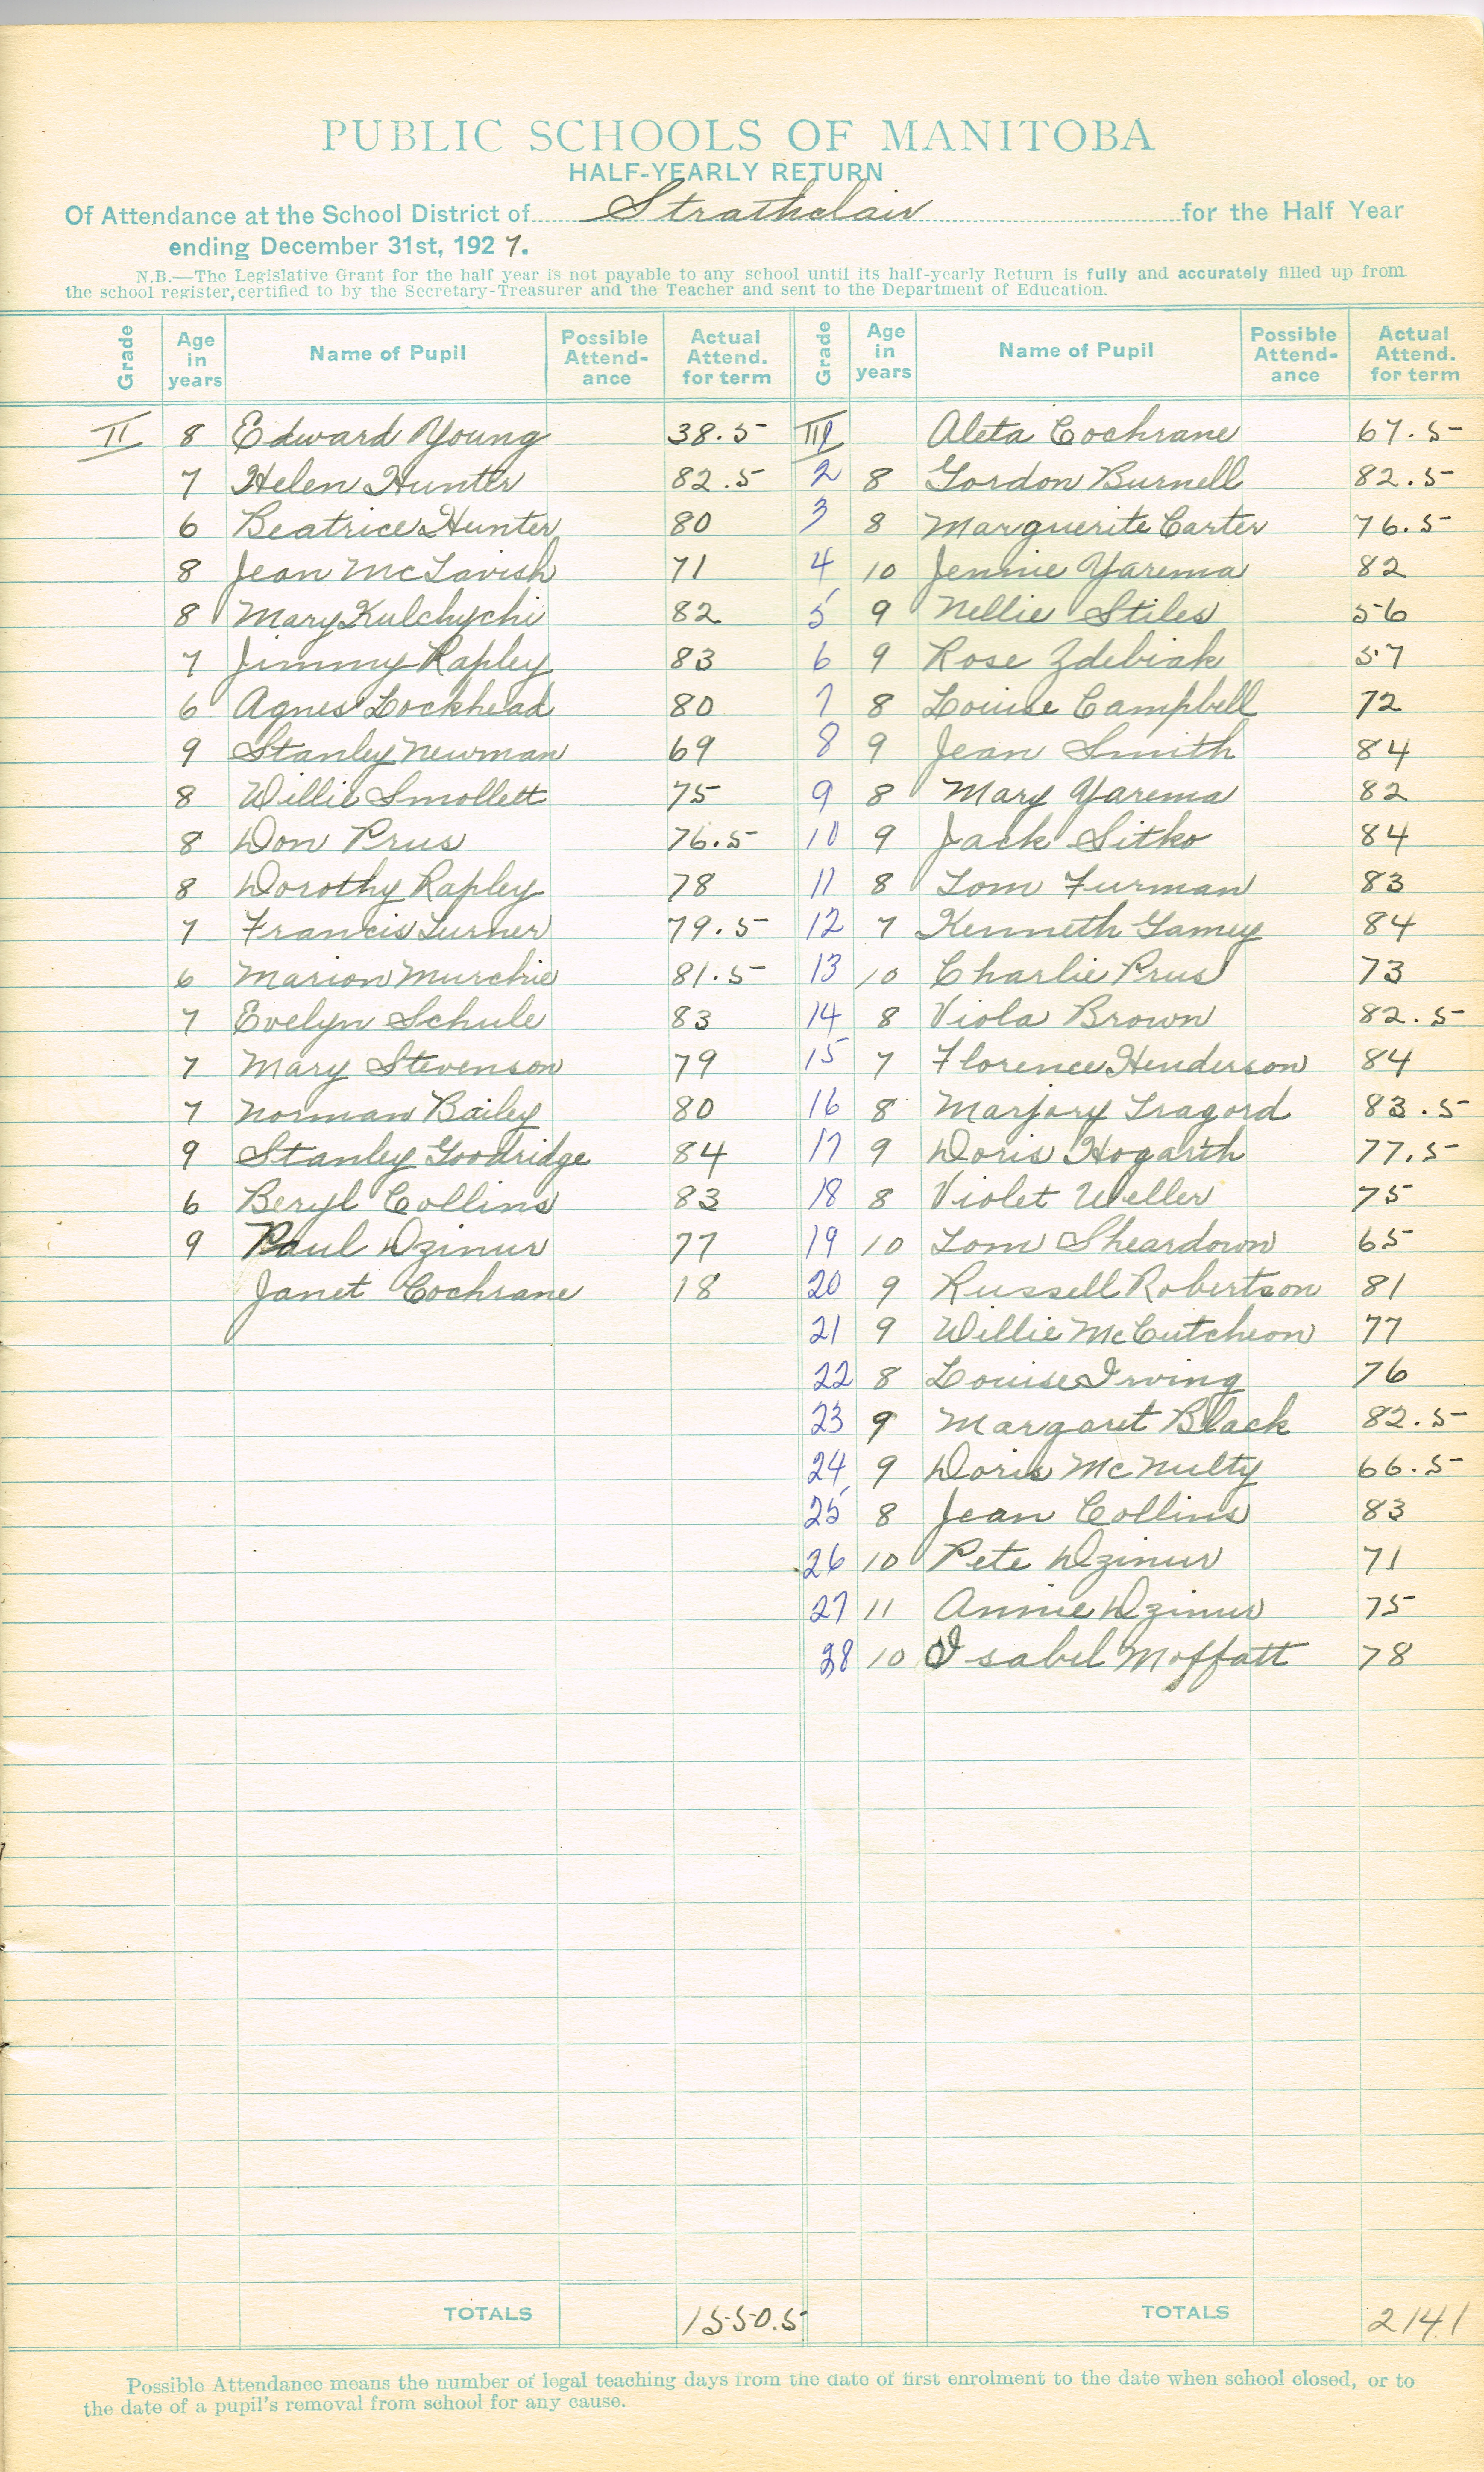 PUBLIC SCHOOLS OF MANITOBA
HALF-YEARLY RETURN
Of Attendance at the School District of Strathclair for the Half Year
ending December 31st, 1927.
N.B.—The Legislative Grant for the half year is not payable to any school until its half-yearly Return is fully and accurately filled up from
the school register, certified to by the Secretary-Treasurer and the Teacher and sent to the Department of Education.
Grade Age in years Name of Pupil Possible Attend-ance Actual Attend. for term Grade Age in years Name of Pupil Possible Attend-ance Actual Attend. for term
II 8 Edward Young 38.5 III Aleta Cochrane 67.5
7 Helen Hunter 82.5 2 8 Gordon Burnell 82.5
6 Beatrice Hunter 80 3 8 Marguerite Carter 76.5
8 Jean McTavish 71 4 10 Jennie Yarema 82
8 Mary Kulchychi 82 5 9 Nellie Stiles 56
7 Jimmy Rapley 83 6 9 Rose Zdebiak 57
6 Agnes Lockhead 80 7 8 Louise Campbell 72
9 Stanley Newman 69 8 9 Jean Smith 84
8 Willie Smollett 75 9 8 Mary Yarema 82
8 Don Prus 76.5 10 9 Jack Sitko 84
8 Dorothy Rapley 78 11 8 Tom Furman 83
7 Francis Turner 79.5 12 7 Kenneth Gamey 84
6 Marion Murchie 81.5 13 10 Charlie Prus 73
7 Evelyn Schule 83 14 8 Viola Brown 82.5
7 Mary Stevenson 79 15 7 Florence Henderson 84
7 Norman Bailey 80 16 8 Marjory Tragord 83.5
9 Stanley Goodridge 84 17 9 Doris Hogarth 77.5
6 Beryl Collins 83 18 8 Violet Weller 75
9 Paul Dzinur 77 19 10 Tom Sheardown 65
Janet Cochrane 18 20 9 Russell Robertson 81
21 9 Willie McCutcheon 77
22 8 Louise Irving 76
23 9 Margaret Black 82.5
24 9 Doris McNulty 66.5
25 8 Jean Collins 83
26 10 Pete Dzinur 71
27 11 Annie Dzinur 75
28 10 Isabel Moffatt 78
TOTALS 1550.5 TOTALS 2141
Possible Attendance means the number of legal teaching days from the date of first enrolment to the date when school closed, or to
the date of a pupil's removal from school for any cause.